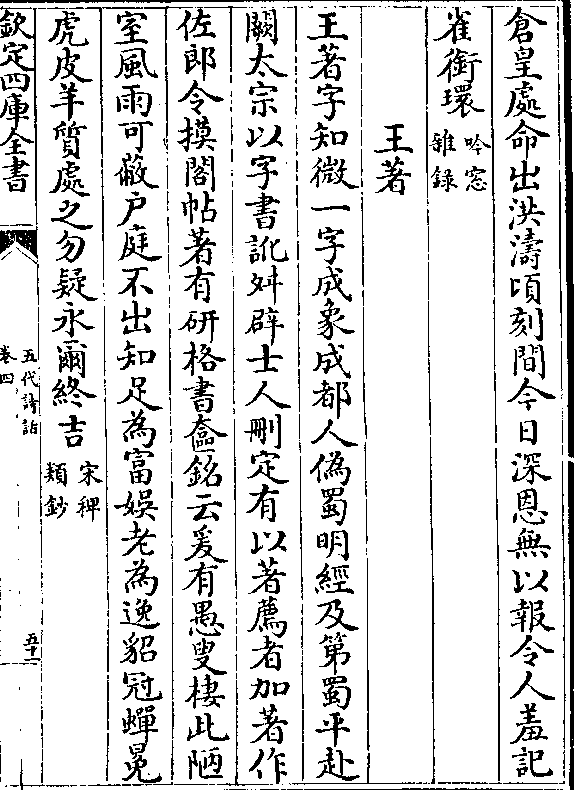 倉皇處命出洪濤頃刻間今日深恩無以報令人羞記
雀銜環吟窓雜錄
王著
王著字知微一字成象成都人偽蜀明經及第蜀平赴
闕太宗以字書訛舛辟士人刪定有以著薦者加著作
佐郎令摸閣帖著有硏格書奩銘云爰有愚叟棲此陋
室風雨可蔽户庭不出知足為富娛老為逸貂冠蟬冕
虎皮羊質處之勿疑永爾終吉宋稗類鈔
欽定四庫全書
五代詩話
卷四
五十二